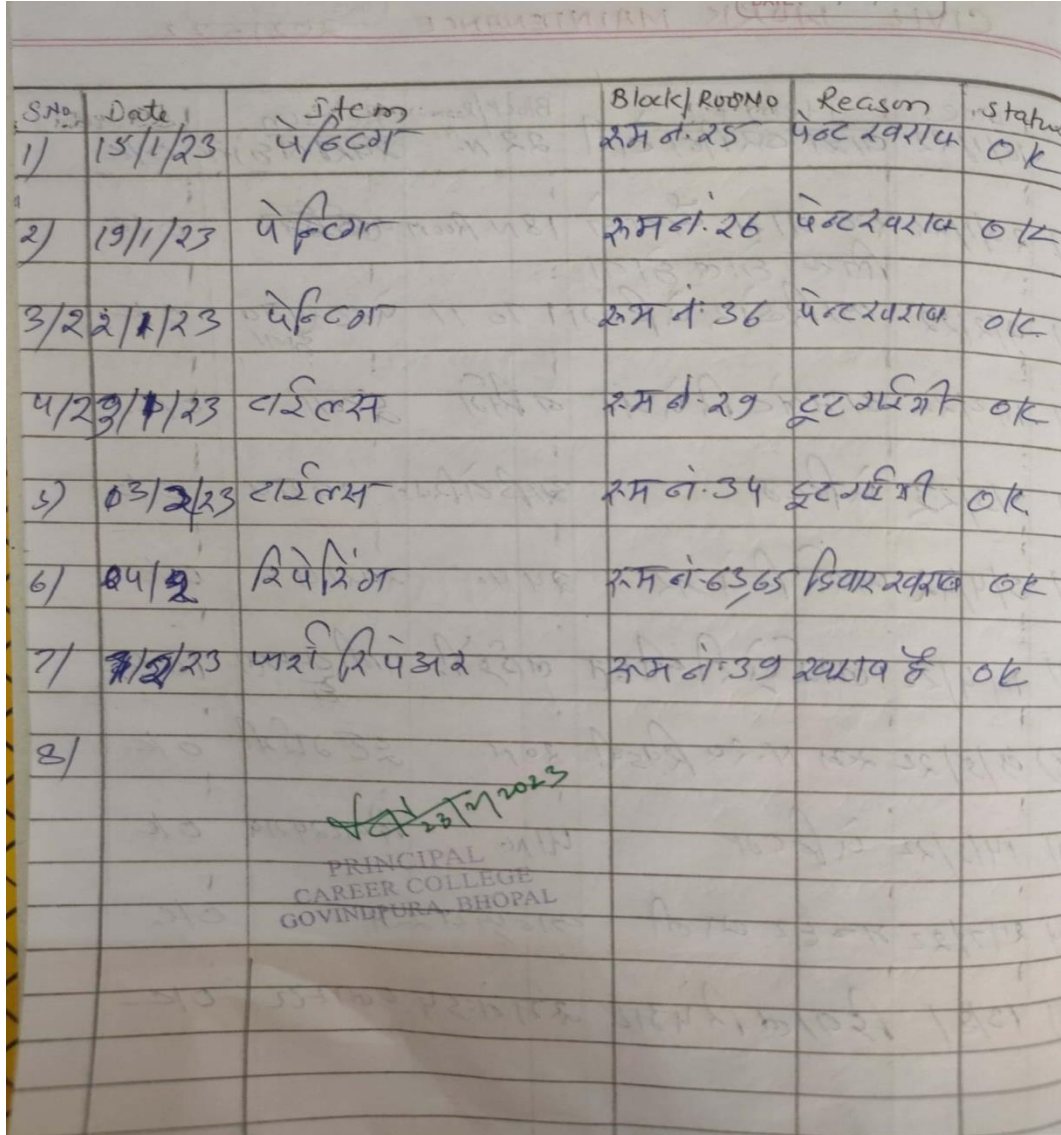 S.No. Date Item Block/RoomNo Reason Status
1) 15/1/23 पेन्टिग रूम नं. 25 पेन्ट खराब OK
2) 19/1/23 पेन्टिग रूम नं. 26 पेन्ट खराब OK
3/ 22/1/23 पेन्टिग रूम नं. 36 पेन्ट खराब OK
4/ 29/1/23 टाईल्स रूम नं. 29 टूट गई थी OK
5) 03/2/23 टाईल्स रूम नं. 34 टूट गई थी OK
6) 04/2 रिपेरिंग रूम नं. 63,65 दिवार खराब OK
7/ 7/2/23 फर्श रिपेअर रूम नं. 39 खराब है OK
8/
23/2/2023
PRINCIPAL
CAREER COLLEGE
GOVINDPURA, BHOPAL